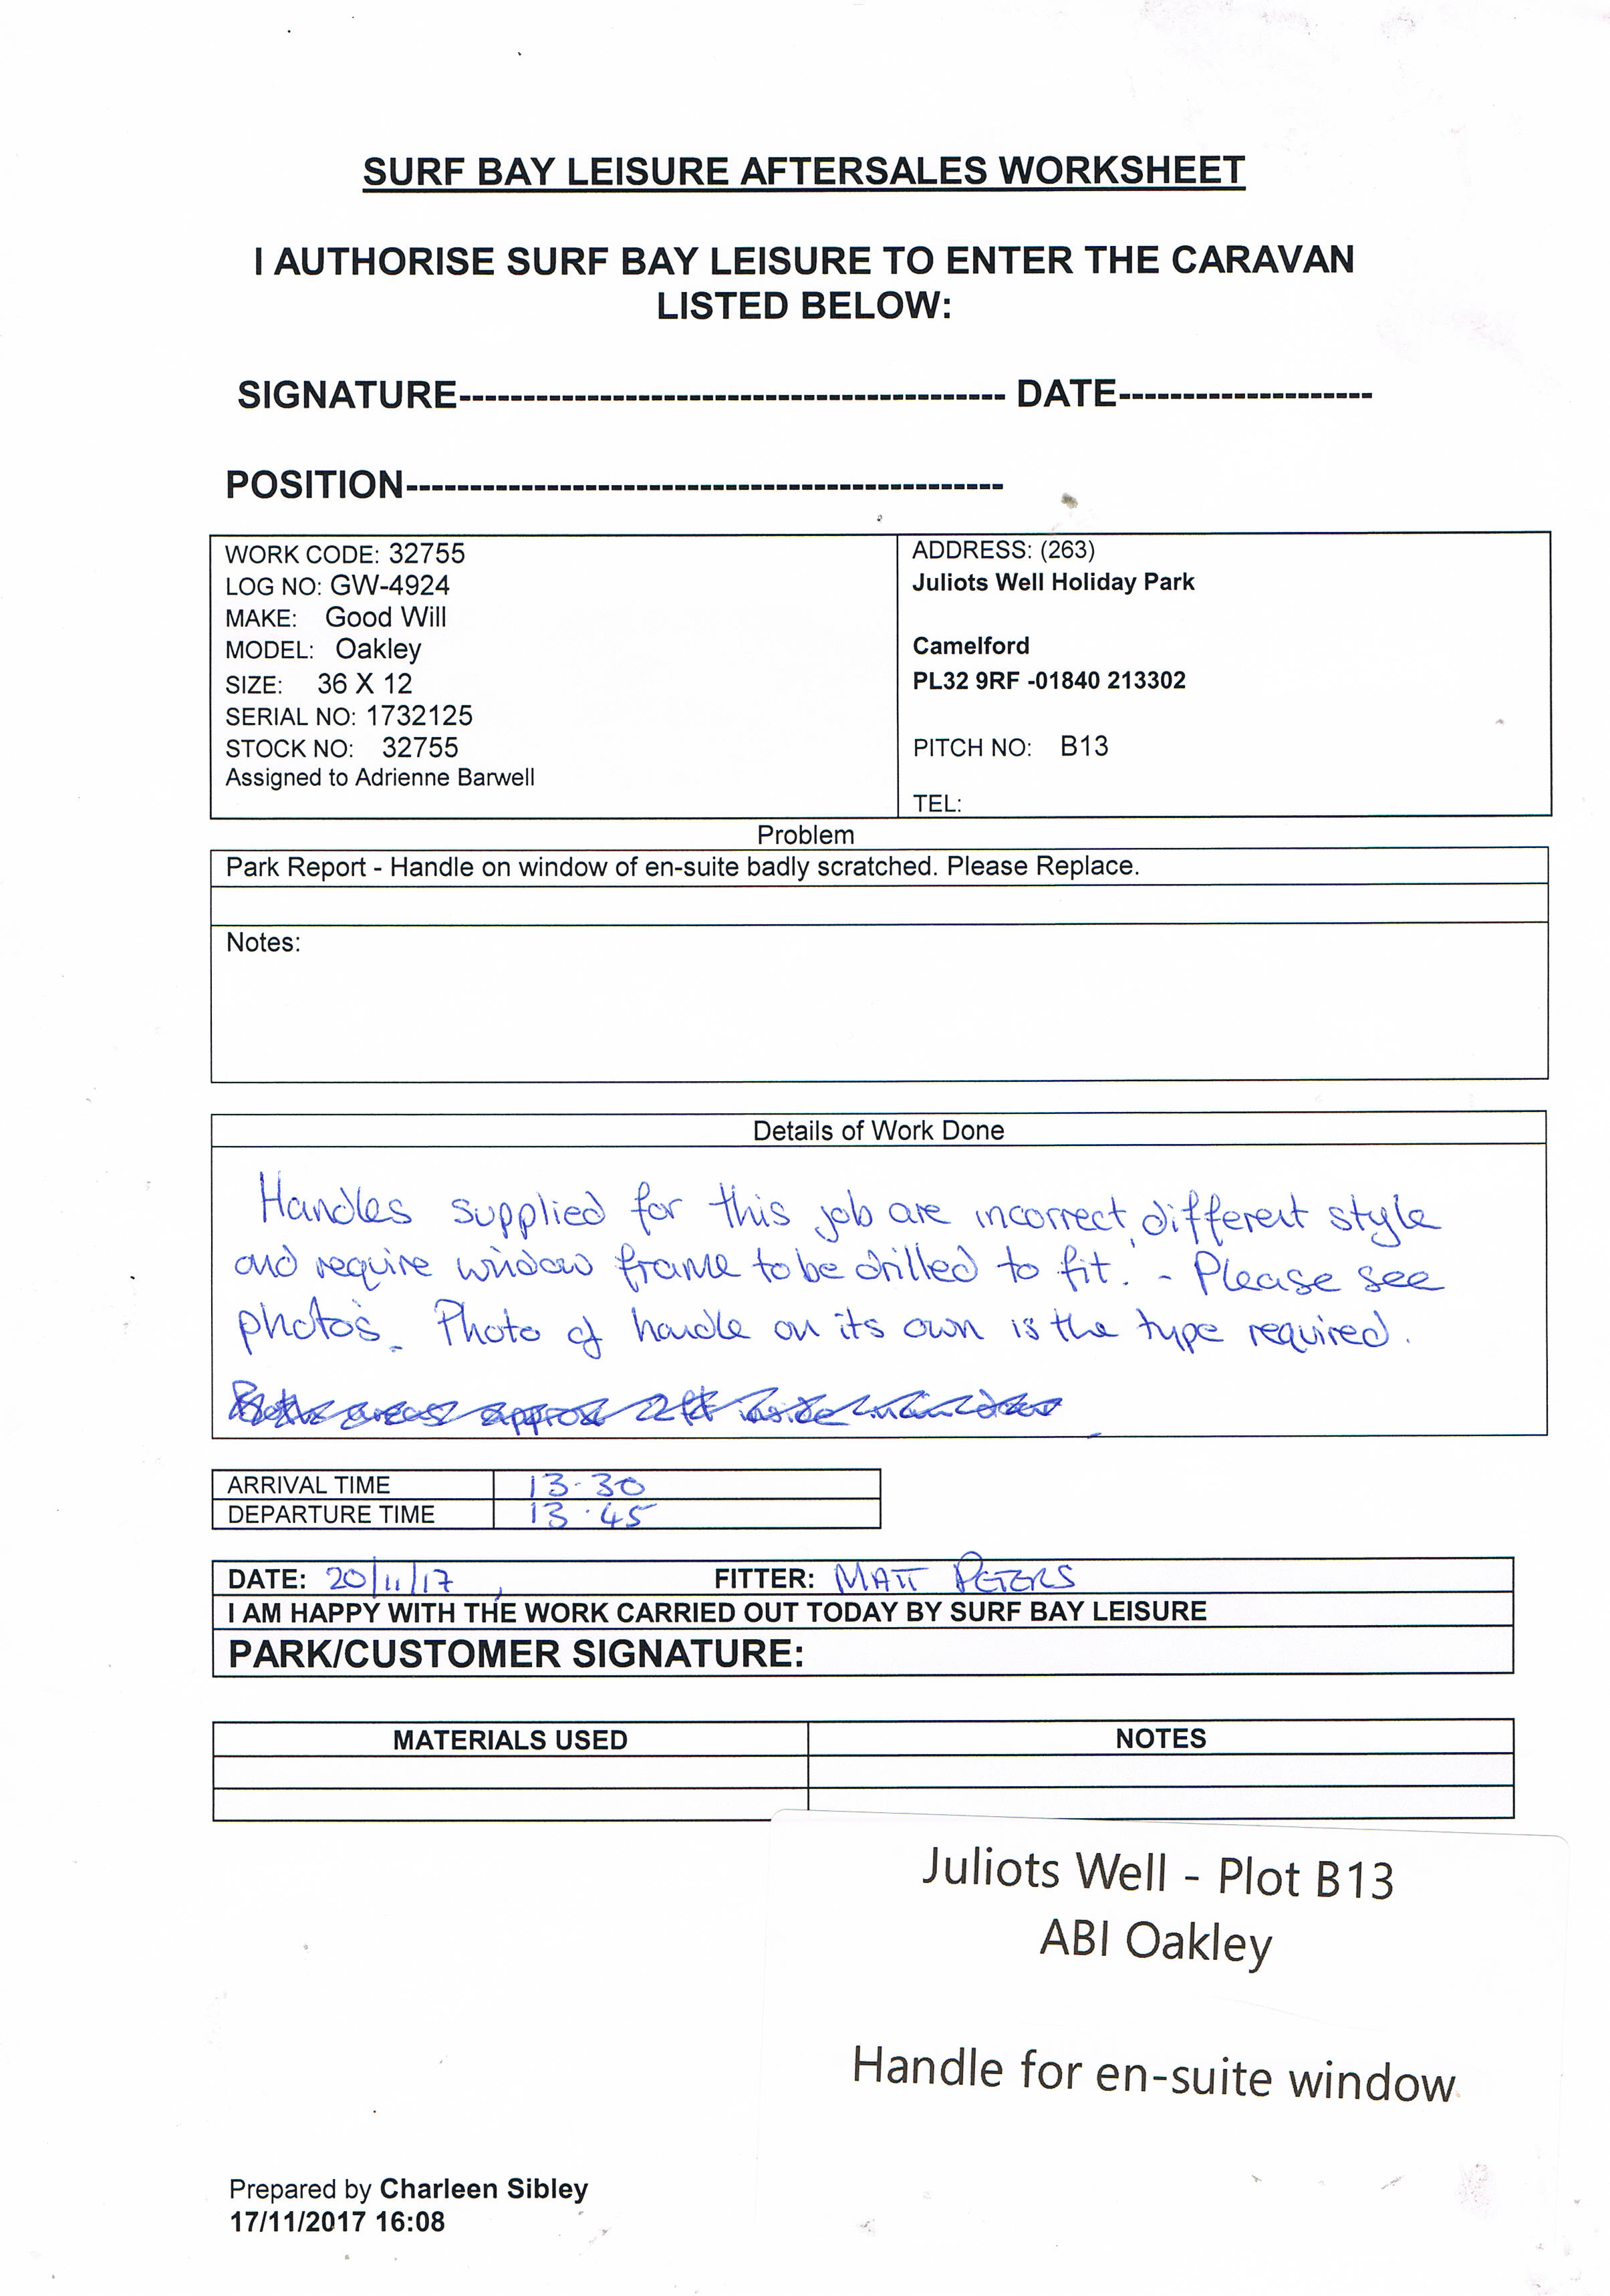 SURF BAY LEISURE AFTERSALES WORKSHEET
I AUTHORISE SURF BAY LEISURE TO ENTER THE CARAVAN
LISTED BELOW:
SIGNATURE------------------------------------------- DATE--------------------
POSITION-----------------------------------------------
WORK CODE: 32755
LOG NO: GW-4924
MAKE: Good Will
MODEL: Oakley
SIZE: 36 X 12
SERIAL NO: 1732125
STOCK NO: 32755
Assigned to Adrienne Barwell
ADDRESS: (263)
Juliots Well Holiday Park
Camelford
PL32 9RF -01840 213302
PITCH NO: B13
TEL:
Problem
Park Report - Handle on window of en-suite badly scratched. Please Replace.
Notes:
Details of Work Done
Handles supplied for this job are incorrect, different style
and require window frame to be drilled to fit. - Please see
photo's. Photo of handle on its own is the type required.
approx 2ft inside
ARRIVAL TIME 13.30
DEPARTURE TIME 13.45
DATE: 20/11/17 FITTER: MATT PETERS
I AM HAPPY WITH THE WORK CARRIED OUT TODAY BY SURF BAY LEISURE
PARK/CUSTOMER SIGNATURE:
MATERIALS USED NOTES
Juliots Well - Plot B13
ABI Oakley
Handle for en-suite window
Prepared by Charleen Sibley
17/11/2017 16:08